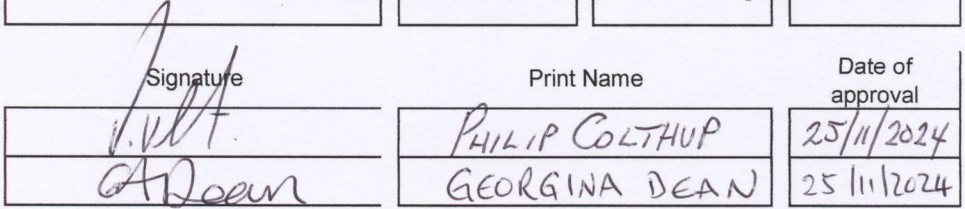 Signature Print Name Date of approval
PHILIP COLTHUP 25/11/2024
GADean GEORGINA DEAN 25/11/2024